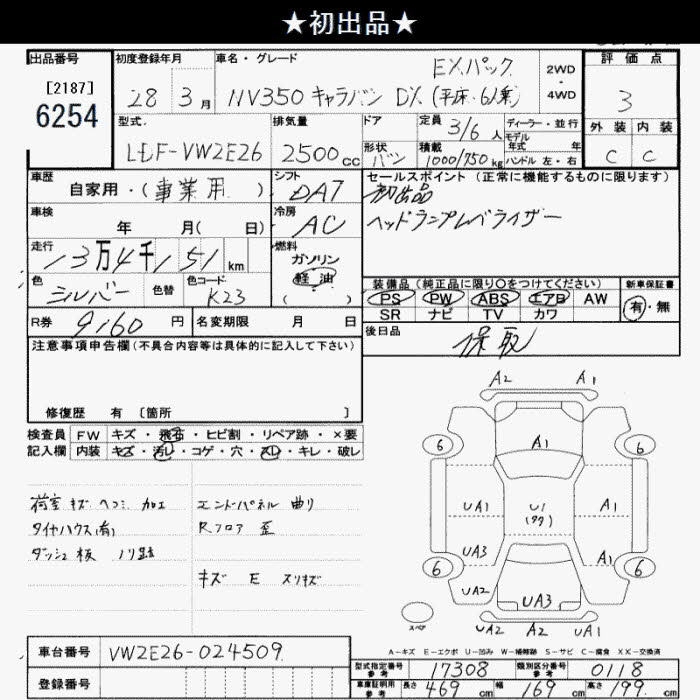 ★初出品★
出品番号
[2187]
6254
初度登録年月
28 3月
車名・グレード
EXパック
NV350 キャラバン DX (平床・6人乗)
2WD
・
4WD
評価点
3
外装 内装
C C
型式
LDF-VW2E26
排気量
2500cc
ドア
形状
バン
定員 3/6人
積載 1000/750kg
ディーラー・並行
モデル
年式 年
ハンドル 左・右
車歴
自家用・(事業用)
シフト
DAT
セールスポイント (正常に機能するものに限ります)
初出品
ヘッドランプレベライザー
車検
年 月( 日)
冷房
AC
走行
13万4千151km
燃料
ガソリン
軽油
( )
色
シルバー
色替
色コード
K23
装備品 (純正品に限り○をつけてください)
PS PW ABS エアB AW
SR ナビ TV カワ
新車保証書
有・無
R券 9160円
名変期限 月 日
後日品
保取
注意事項申告欄 (不具合内容等は具体的に記入して下さい)
修復歴 有 [箇所 ]
検査員
記入欄
FW キズ・飛石・ヒビ割・リペア跡・×要
内装 キズ・汚レ・コゲ・穴・スレ・キレ・破レ
荷室 キズ ヘコミ 加工
エンドパネル 曲り
タイヤハウス(有)
Rフロア 歪
ダッシュ板 ノリ跡
キズ E スリキズ
A2 A1
6 A1 6
UA1 U1 A1
(タタ)
UA3 A1
6 6
UA2 UA3
スペア
UA2 A2 UA1
A-キズ E-エクボ U-凹み W-補修跡 S-サビ C-腐食 XX-交換済
車台番号 VW2E26-024509
登録番号
型式指定番号
参考
17308
類別区分番号
参考
0118
車庫証明用
参考
長さ 469cm 幅 169cm 高さ 199cm